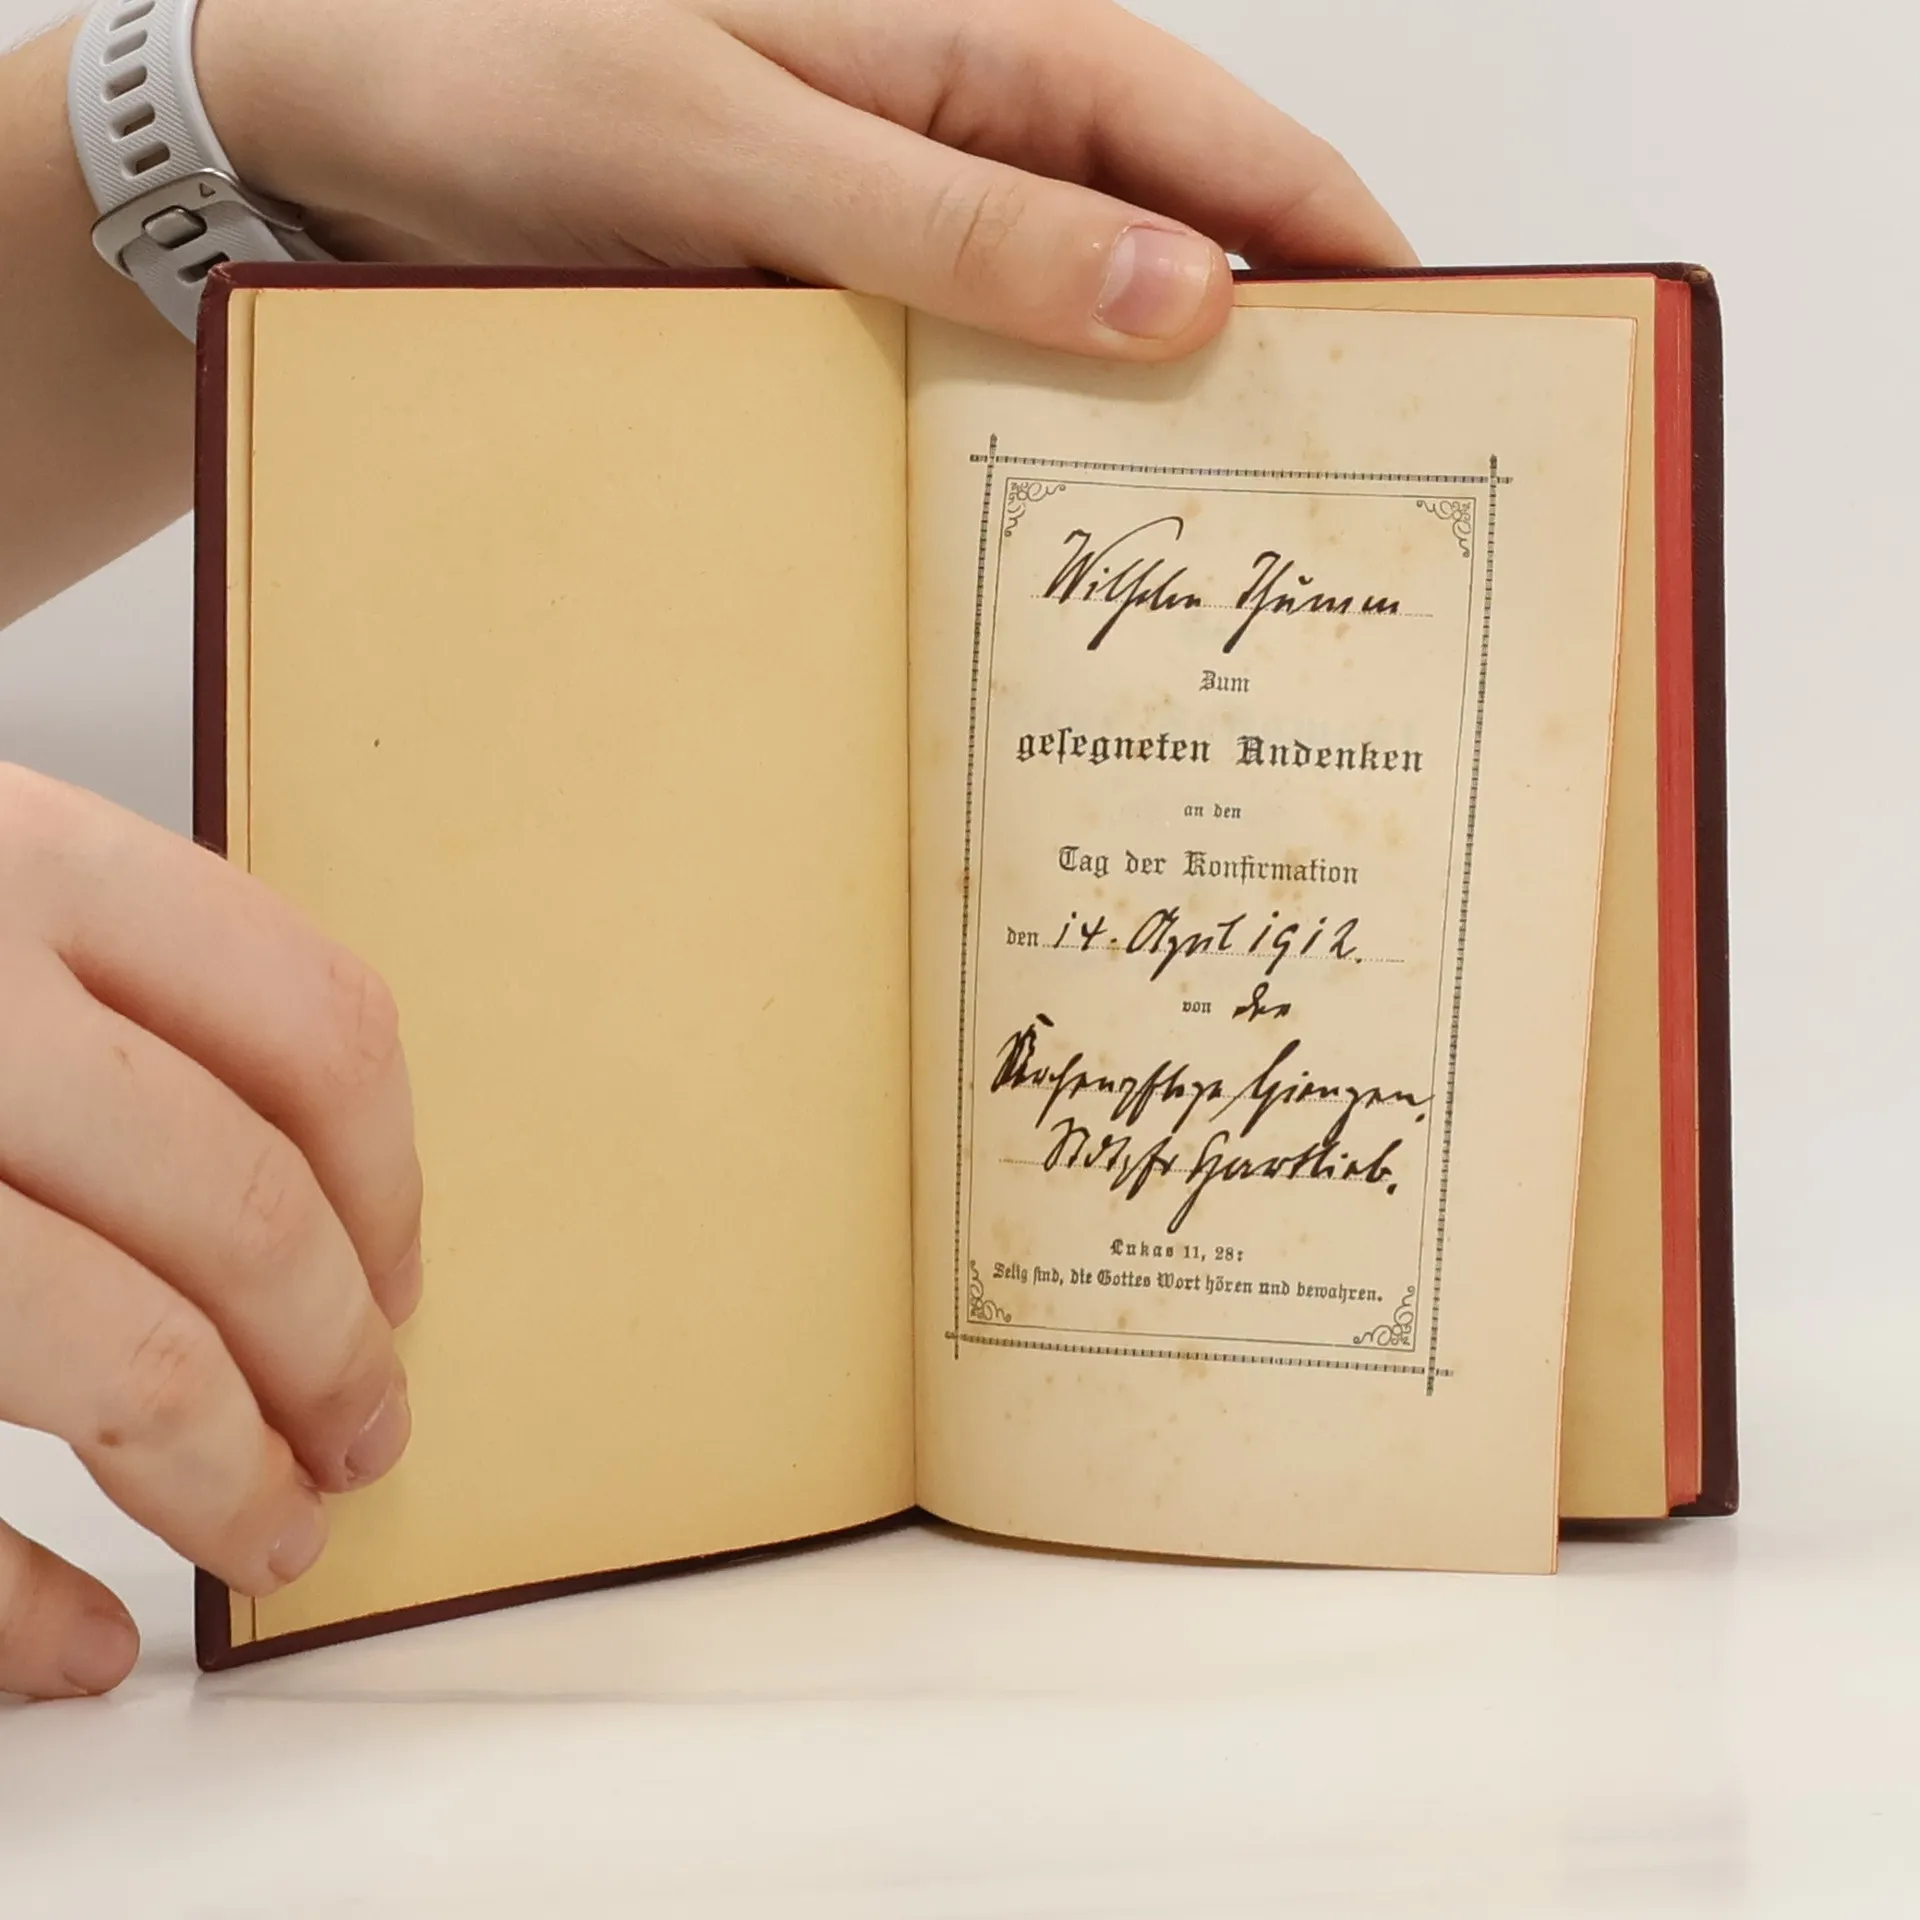 Wilhelm Thumm
Zum
gesegneten Andenken
an den
Tag der Konfirmation
den 14. April 1912.
von der
Kirchenpflege Giengen.
Stdtpfr Hartlieb.
Lukas 11, 28:
Selig sind, die Gottes Wort hören und bewahren.